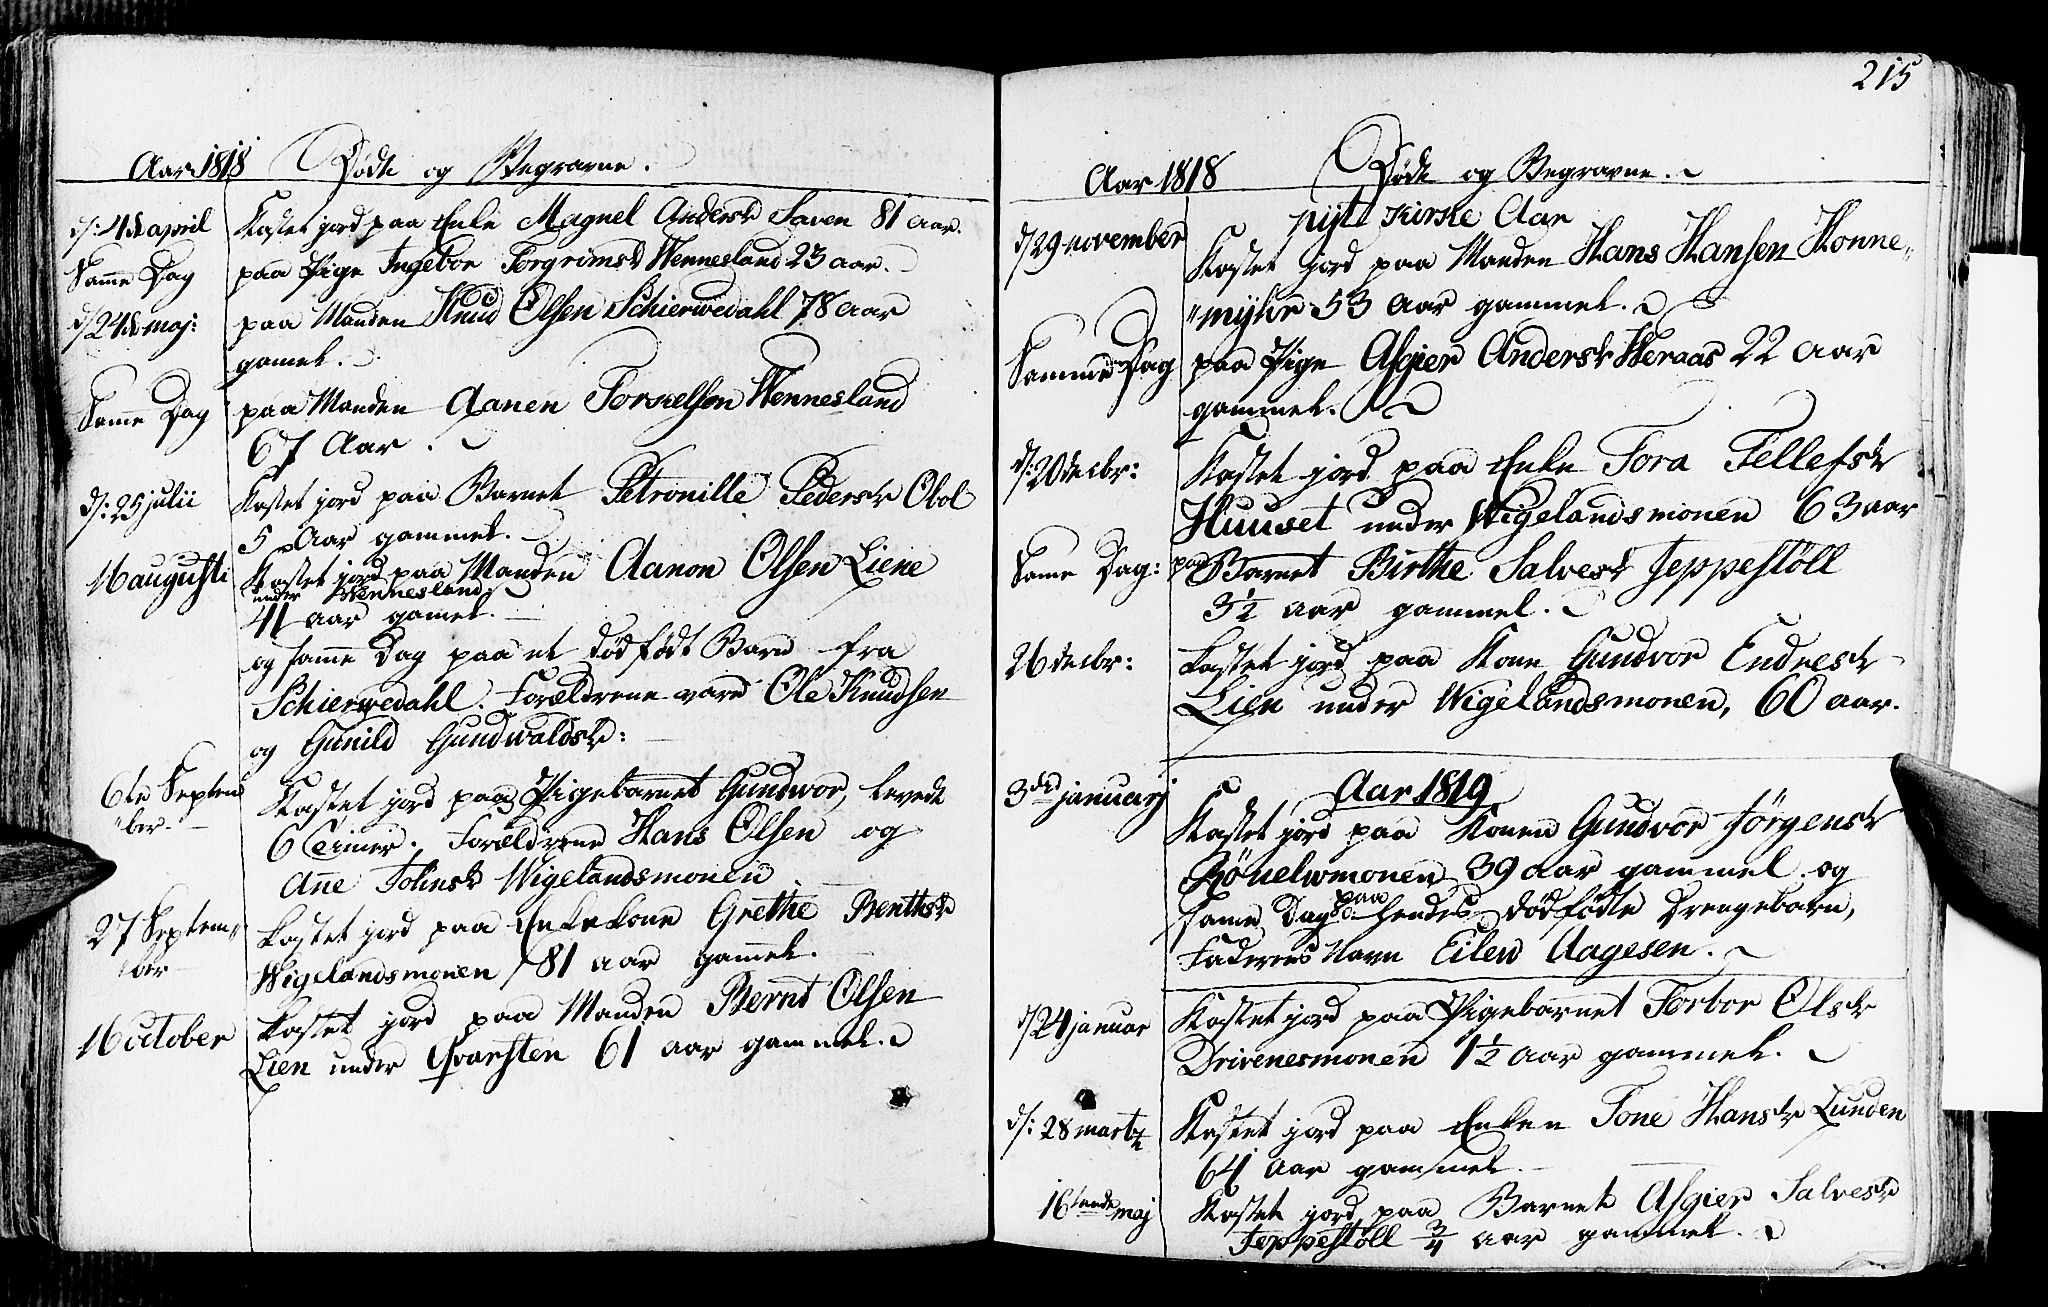 Aar 1818 Døde og Begravne.
d: 4de april Kastet jord paa Enke Magnel Andersdr Saven 81 Aar.
Samme Dag paa Pige Ingebor Torgrimsdr Wennesland 23 aar.
d: 24de maj: paa Manden Knud Olsen Schierwedahl 78 aar
gamel.
Same Dag paa Manden Aanen Torkelsen Wennesland
67 Aar.
d: 25 julii Kastet jord paa Barnet Petronille Pedersdr Obol
5 Aar gammel.
16 augusti Kastet jord paa Manden Aanon Olsen Liene
under Wennesland
41 aar gamel.
og samme Dag paa et dødfødt Barn fra
Schierwedahl. Forældrene vare Ole Knudsen
og Gunild Gundwaldsdr:
6te Septem Kastet jord paa Pigebarnet Gundwor, levede
"ber. 6 Forældrene Hans Olsen og
Anne Johnsdr Wigelandsmonen
27 Septem" Kastet jord paa Enkekone Grethe Bentsdr
ber Wigelandsmonen 81 aar gamel.
16 october Kastet jord paa Manden Bernt Olsen
Lien under Qvarsten 61 aar gammel.
215
Aar 1818 Døde og Begravne.
nyt Kirke Aar
d: 29 november Kastet jord paa Manden Hans Hansen Honne"
"myhr 53 Aar gammel.
Samme Dag paa Pige Asgier Andersdr Heraas 22 Aar
gammel.
d: 20 decbr: Kastet jord paa Enke Tora Tellefsdr
Huuset under Wigelandsmonen 63 aar
Same Dag: paa Barnet Birthe Salvesdr Jeppestöll
3½ aar gammel.
26 decbr: Kastet jord paa Kone Gundvor Endresdr
Lien under Wigelandsmonen, 60 aar.
Aar 1819
3die januarj Kastet jord paa Konen Gundvor Jörgensdr
39 aar gammel og
same Dag paa hendes dødfødte Drengebarn,
Faderens Navn Eilev Aagesen.
d: 24 januar Kastet jord paa Pigebarnet Torbor Olsdr
Drivenesmonen 1½ aar gammel.
d: 28 martz Kastet jord paa Enken Tone Hansdr Lunden
64 aar gammel.
16 maj Kastet jord paa Barnet Asgier Salvesdr
Jeppestöll ¾ aar gammel.